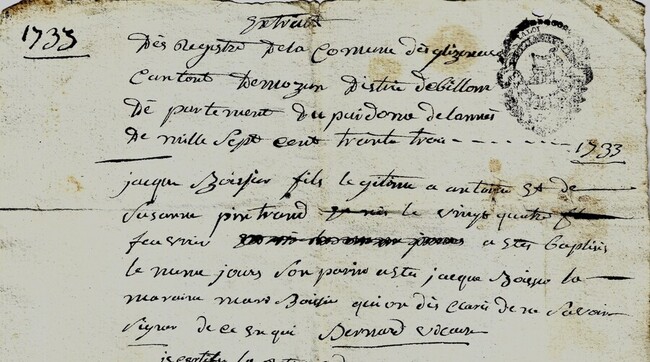 1733
Extrait
Dès Registre De la Comune dès glizeneuve
Cantont Demozun Distric de billom
Dé partement Du puidome de lannés
De mille Sept Cent trante trois 1733
jacque Boissier fils legitime a antoine et de
Susanne pintrand le vingt quatre
feuvrier a etes baptisés
le meme jours Son parin a ete jacque Boissie la
maraine marie Boissie qui on dès clarés de ne Savoir
Signer de ce enqui Bernard vicaire